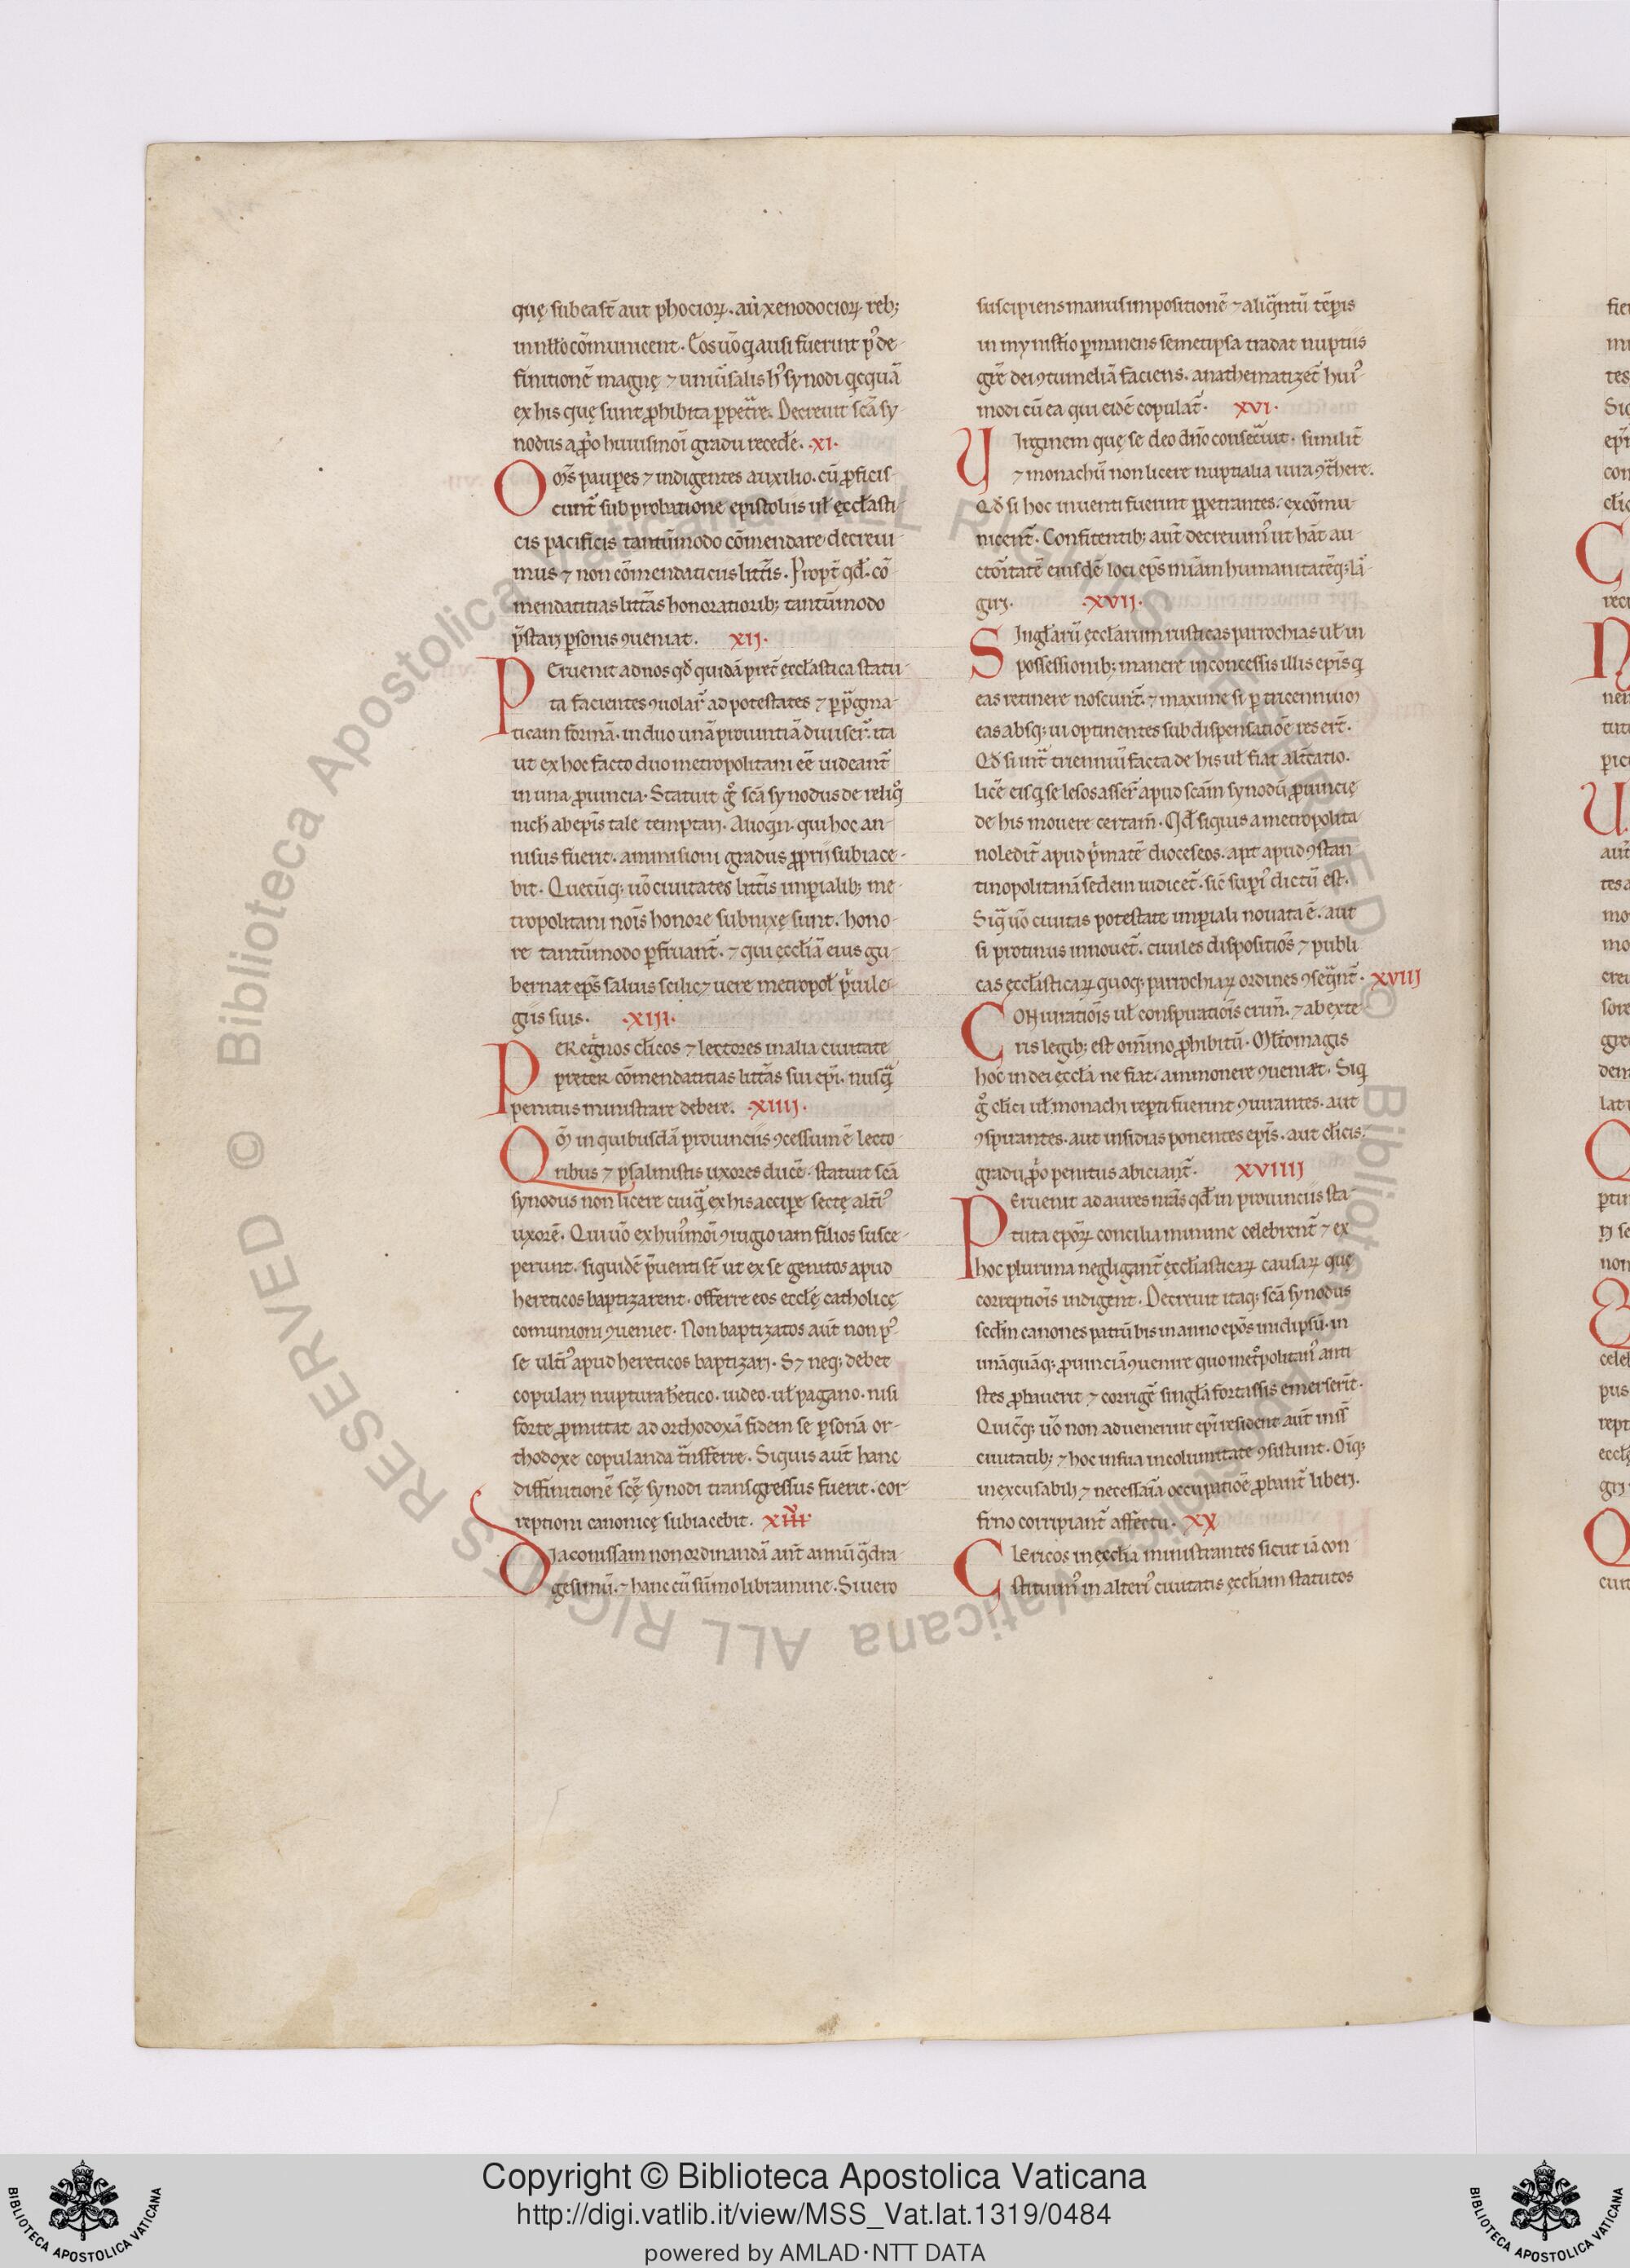 quę sub ea st̄ aut ptochioꝝ. aut xenodocioꝝ reb;
in nullo cōmunicent. Eos ū q̄ ausi fuerint p᷒ de-
finitionē magnę ⁊ uniūsalis hꝰ synodi q̄cquā
ex his quę sunt ꝓhibita ꝑpet̄re. Decreuit sc̄a sy-
nodus a ꝓp̄o huiusmōi gradu recedē. .XI.
Om̄s pauꝑes ⁊ indigentes auxilio. cū ꝓficis-
cunt᷒ sub probatione epistoliis ul̄ ęccłasti-
cis pacificis tantūmodo cōmendare decreui-
mus ⁊ non cōmendaticiis litt̄is. Propt̄ qd̄. cō-
mendatitias litt̄as honoratiorib; tantūmodo
p̄stari ꝑsonis ꝯueniat. XII.
Peruenit ad nos qd̄ quidā pret̄ ęccłastica statu-
ta facientes ꝯuolar̄ ad potestates ⁊ ꝑ p̄gma-
ticam formā. in duo unā prouintiā diuiser̄. ita
ut ex hoc facto duo metropolitani eē uideant̄
in una ꝓuincia. Statuit g̊ sc̄a synodus de reliq̊
nich̄ ab ep̄is tale temptari. Alioq̄n. qui hoc an-
nisus fuerit. ammisioni gradus ꝓprii subiace-
bit. Quecūq; ūo ciuitates litt̄is imꝑialib; me-
tropolitani nōis honore subnixę sunt. hono-
re tantūmodo ꝑfruant̄. ⁊ qui ęccłiā eius gu-
bernat ep̄s saluis scilic⁊ uere metropoł p̄uile-
giis suis. .XIII.
Peregͥnos cłicos ⁊ lectores in alia ciuitate
preter cōmendatitias litt̄as sui ep̄i. nusq̄
penitus ministrare debere. .XIIII.
Qm̄ in quibusdā prouinciis ꝯcessum ē lecto-
ribus ⁊ psalmistis uxores ducē. statuit sc̄a
synodus non licere cuiq̄ ex his accipe sectę alt̄iꝰ
uxorē. Qui ūo ex huiꝰmōi ꝯiugio iam filios susce-
perunt. siquidē p̄uenti st̄ ut ex se genitos apud
hereticos baptizarent. offerre eos eccłę catholicę
comunioni ꝯueniet. Non baptizatos aut̄ non pꝰ-
se ult̄iꝰ apud hereticos baptizari. S⁊ neq; debet
copulari nuptura h̄etico. iudeo. ul̄ pagano. nisi
forte ꝓmittat ad orthodoxā fidem se ꝑsonā or-
thodoxe copulanda t̄nsferre. Siquis aut̄ hanc
diffinitionē sc̄ę synodi transgressus fuerit. cor-
reptioni canonicę subiacebit.
Diaconissam non ordinandā ant̄ annū q̄dra-
gesimū. ⁊ hanc cū sūmo libramine. Si uero
suscipiens manus impositionē ⁊ aliq̄ntū tēꝑis
in mynistio ꝑmanens semetipsa tradat nuptiis
gr̄e dei ꝯtumeliā faciens. anathematizet̄ huiꝰ
modi cū ea qui eidē copulat̄. XVI.
Uirginem quę se deo dn̄o consec̄uit. similit̄
⁊ monachū non licere nuptialia iura ꝯt̄here.
Qd̄ si hoc inuenti fuerint ꝑpetrantes. excōmu-
nicent̄. Confitentib; aut̄ decreuimꝰ ut hāt au-
ctoritatē eiusdē loci ep̄s miām humanitatēq; la-
giri. .XVII.
Singłarū ęccłarum rusticas parrochias ul̄ in
possessionib; manere inconcessis illis ep̄is q
eas retinere noscunt̄. ⁊ maxime si ꝑ tricennium
eas absq; ui optinentes sub dispensatiōe rexer̄t.
Qd̄ si int̄ triennıū facta de his ul̄ fiat alt̄catio.
licē eis q se lesos asser̄ apud sc̄am synodū ꝓuincię
de his mouere certam̄. Qd̄ siquis a metropolita
no ledit̄ apud p̄matē dioceseos. apt apud ꝯstan
tinopolitanā sedem iudicet̄. sic̄ supꝰ dictū est.
Siq̄ ūo ciuitas potestate imꝑiali nouata ē. aut
si protinus innouet̄. ciuiles dispositiōs ⁊ publi
cas ęccłasticaꝝ quoq; parrochiaꝝ ordines ꝯseq̄nt̄. XVIII
Coniurationis ul̄ conspirationis crim̄. ⁊ ab exte-
ris legib; est om̄ino ꝓhibitū. Młto magis
hoc in dei ęccła ne fiat. ammonere ꝯueniat. Siq
g̊ cłici ul̄ monachi reꝑti fuerint ꝯiurantes. aut
ꝯspirantes. aut insidias ponentes ep̄is. aut cłicis.
gradu ꝓp̄o penitus abiciant̄. XVIIII
Peruenit ad aures nr̄as qd̄ in prouinciis sta-
tuta epōꝝ concilia minime celebrent̄ ⁊ ex
hoc plurima negligant̄ ęccłiasticaꝝ causaꝝ quę
correptiōis indigent. Decreuit itaq; sc̄a synodus
scd̄m canones patrū bis in anno epōs in idipsū. in
unāquāq; ꝓuinciā ꝯuenire quo met̊politanꝰ anti
stes ꝓbauerit ⁊ corrigē singła fortassis emerserit.
Quicq; ūo non aduenerint ep̄i resident aut̄ in s̄
ciuitatib; ⁊ hoc in sua incolumitate ꝯsistunt. Oīq;
inexcusabili ⁊ necessaria occupatiōe ꝓbant̄ liberi.
frno corripiant̄ affectu. XX
Clericos in ęccłia ministrantes sicut iā con
stituimꝰ in alteriꝰ ciuitatis ęccłiam statutos
Copyright © Biblioteca Apostolica Vaticana
http://digi.vatlib.it/view/MSS_Vat.lat.1319/0484
powered by AMLAD·NTT DATA
BIBLIOTECA APOSTOLICA VATICANA
BIBLIOTECA APOSTOLICA VATICANA
© Biblioteca Apostolica Vaticana ALL RIGHTS RESERVED
© Biblioteca Apostolica Vaticana ALL RIGHTS RESERVED